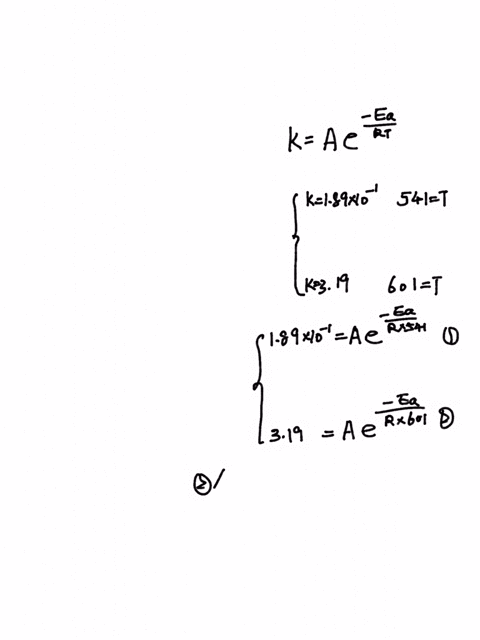 K = A e^{\frac{-Ea}{RT}}
K=1.89×10^{-1} 541=T
K=3.19 601=T
1.89×10^{-1} = A e^{\frac{-Ea}{R×541}} ①
3.19 = A e^{\frac{-Ea}{R×601}} ②
②/